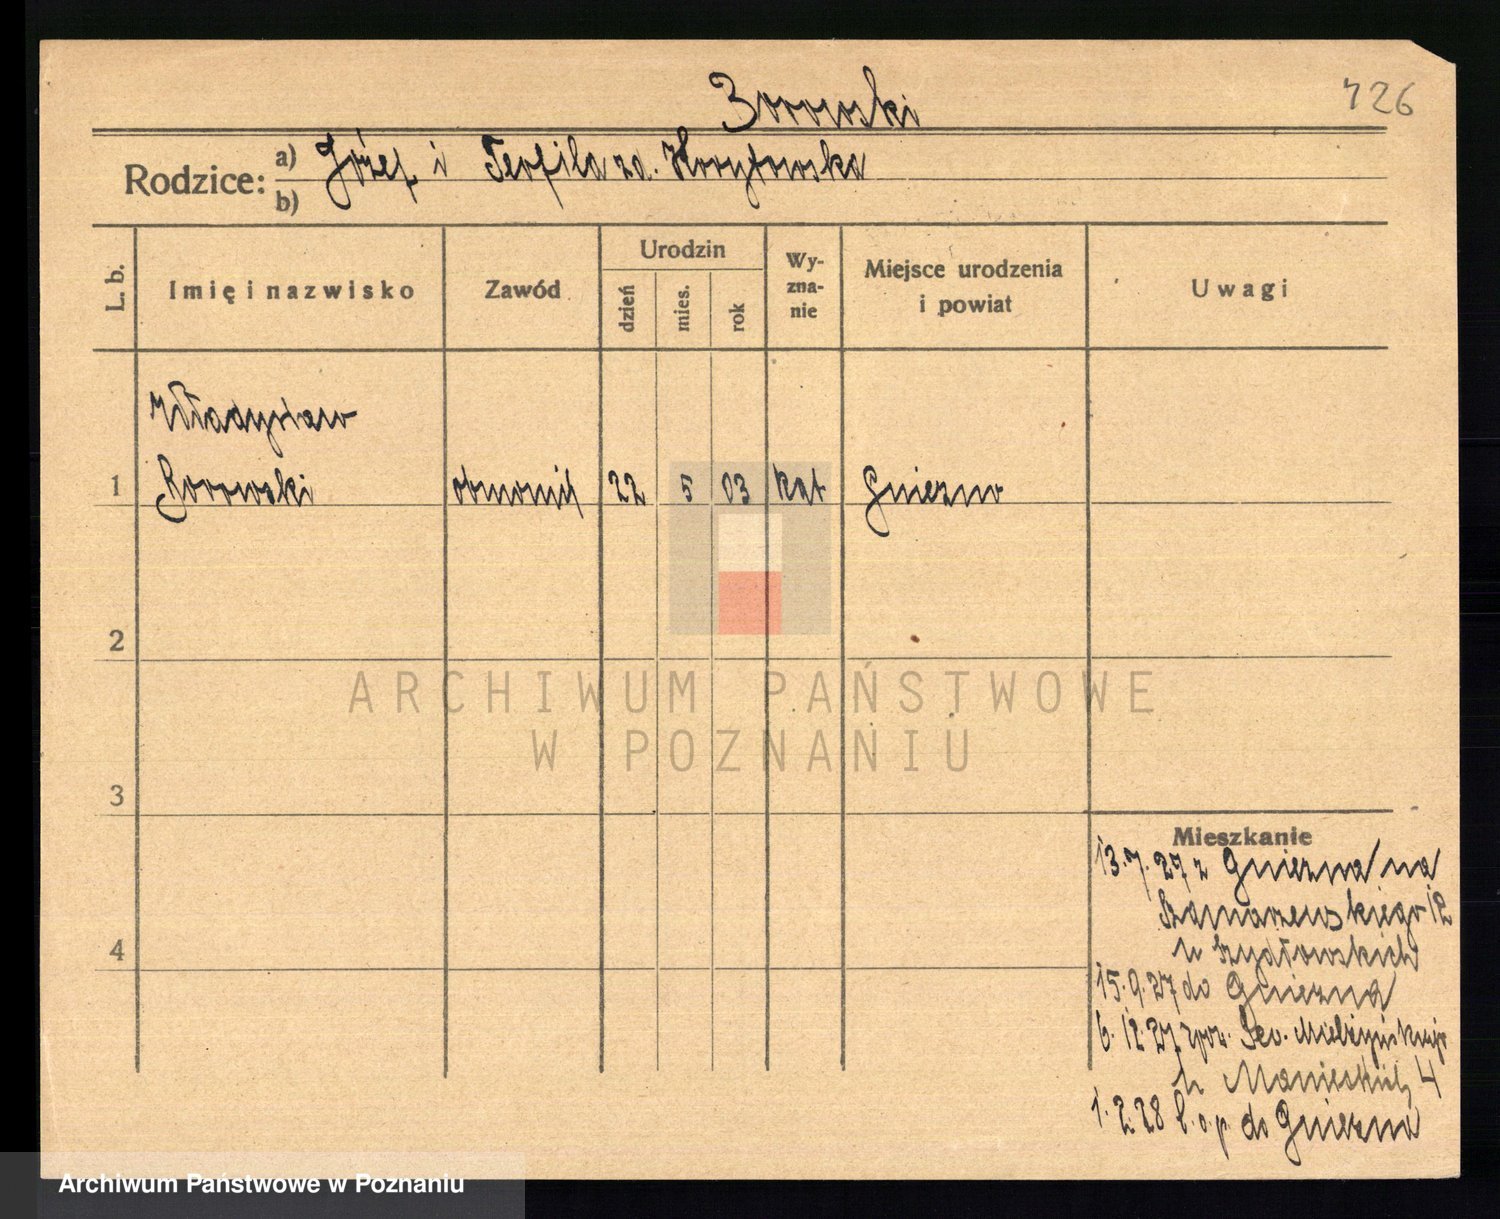 726
Borowski
Rodzice: a) Józef i Teofila zd. Korytowska
b)
L. b.
Imię i nazwisko
Zawód
Urodzin
dzień
mies.
rok
Wy-
zna-
nie
Miejsce urodzenia
i powiat
Uwagi
Władysław
1 Borowski 22 5 03 kat Gniezno
2
ARCHIWUM PAŃSTWOWE
W POZNANIU
3
4
Mieszkanie
13.7.27 z Gniezna / na
Szamarzewskiego 12
u Szydłowskich
15.9.27 do Gniezna
6.12.27 Sew. Mielżyńskiego
u 4
1.2.28 b.o.p. do Gniezna
Archiwum Państwowe w Poznaniu